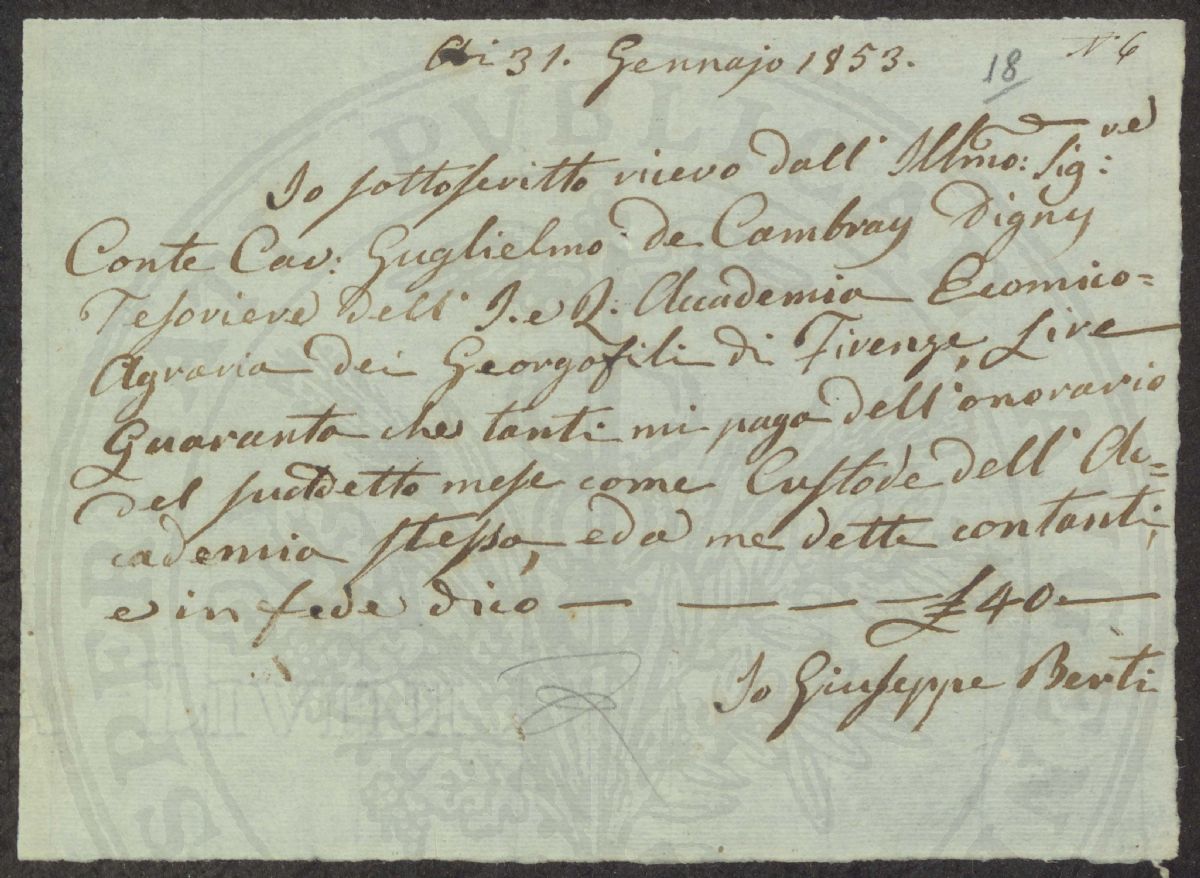 Adi 31. Gennajo 1853.
18
N. 6
Io sottoscritto ricevo dall' Illmo: Sig:re
Conte Cav: Guglielmo de Cambray Digny
Tesoriere dell' I. e R. Accademia Ecomico=
Agraria dei Georgofili di Firenze, Lire
Quaranta che tanti mi paga dell' onorario
del suddetto mese come Custode dell' Ac=
cademia stessa, ed a me dette contanti,
e in fede dico — — — — £ 40 —
Io Giuseppe Berti